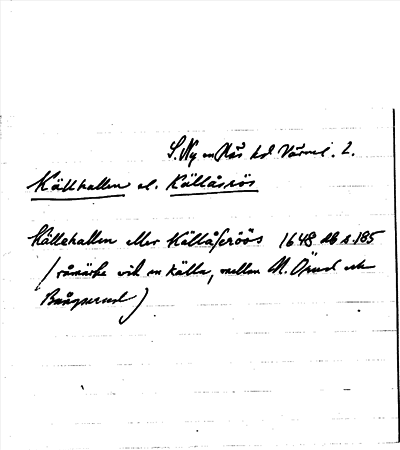 S. Ny en Näs hd Värml. l.
Källhallen el. Källåsrös
Källehallen eller Källåßröös 1648 AB s. 185
(råmärke vid en källa, mellan N. Örud och
Bångerud)